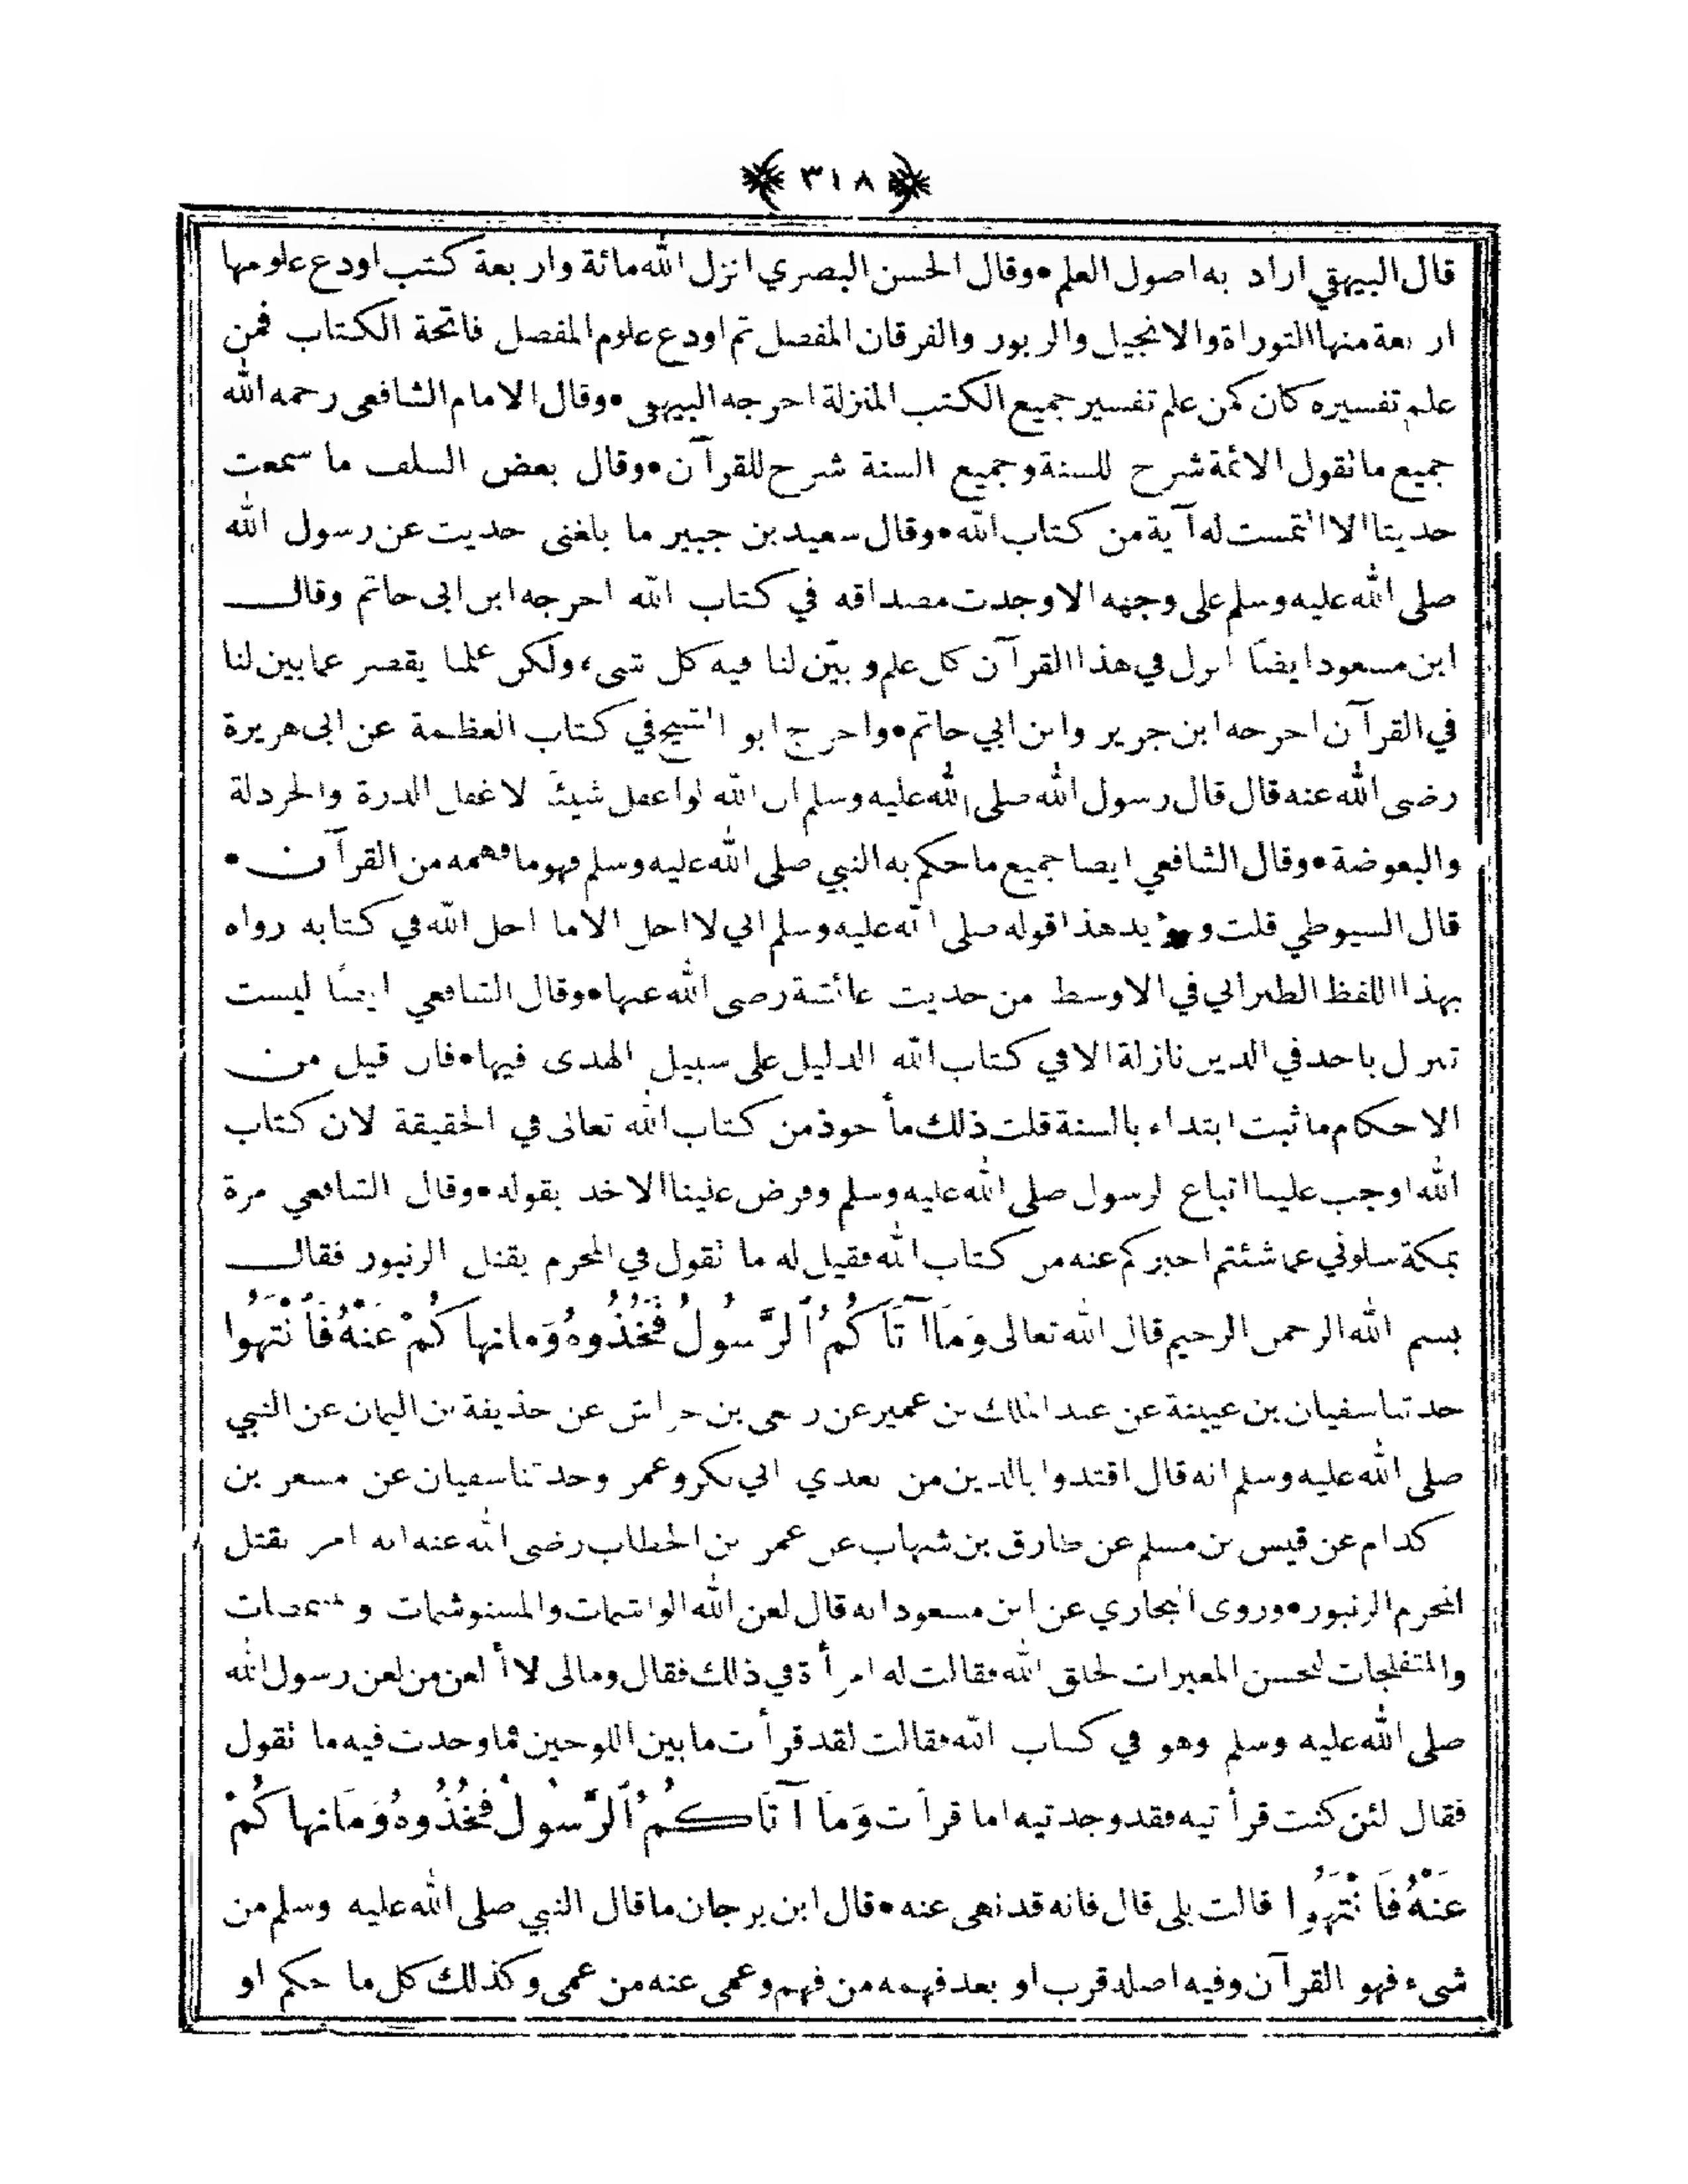 ٣١٨
قال البيهقي اراد به اصول العلم • وقال الحسن البصري انزل الله مائة واربعة كتب اودع علومها
اربعة منها التوراة والانجيل والزبور والفرقان المفصل ثم اودع علوم المفصل فاتحة الكتاب فمن
علم تفسيره كان كمن علم تفسير جميع الكتب المنزلة اخرجه البيهقي • وقال الامام الشافعي رحمه الله
جميع ما تقول الائمة شرح للسنة وجميع السنة شرح للقرآن • وقال بعض السلف ما سمعت
حديثا الا التمست له آية من كتاب الله • وقال سعيد بن جبير ما بلغني حديث عن رسول الله
صلى الله عليه وسلم على وجهه الا وجدت مصداقه في كتاب الله اخرجه ابن ابي حاتم وقال
ابن مسعود ايضًا انزل في هذا القرآن كل علم وبيّن لنا فيه كل شيء ولكن علمنا يقصر عما بين لنا
في القرآن اخرجه ابن جرير وابن ابي حاتم • واخرج ابو الشيخ في كتاب العظمة عن ابي هريرة
رضي الله عنه قال قال رسول الله صلى الله عليه وسلم ان الله لو اغفل شيئًا لاغفل الذرة والخردلة
والبعوضة • وقال الشافعي ايضا جميع ما حكم به النبي صلى الله عليه وسلم فهو ما فهمه من القرآن •
قال السيوطي قلت ويؤيد هذا قوله صلى الله عليه وسلم اني لا احل الا ما احل الله في كتابه رواه
بهذا اللفظ الطبراني في الاوسط من حديث عائشة رضي الله عنها • وقال الشافعي ايضًا ليست
تنزل باحد في الدين نازلة الا في كتاب الله الدليل على سبيل الهدى فيها • فان قيل من
الاحكام ما ثبت ابتداء بالسنة قلت ذلك مأخوذ من كتاب الله تعالى في الحقيقة لان كتاب
الله اوجب علينا اتباع الرسول صلى الله عليه وسلم وفرض علينا الاخذ بقوله • وقال الشافعي مرة
بمكة سلوني عما شئتم اخبركم عنه من كتاب الله فقيل له ما تقول في المحرم يقتل الزنبور فقال
بسم الله الرحمن الرحيم قال الله تعالى وَمَا آتَاكُمُ ٱلرَّسُولُ فَخُذُوهُ وَمَا نهاكُمْ عَنْهُ فَٱنْتَهُوا
حدثنا سفيان بن عيينة عن عبد الملك بن عمير عن ربعي بن حراش عن حذيفة بن اليمان عن النبي
صلى الله عليه وسلم انه قال اقتدوا بالذين من بعدي ابي بكر وعمر وحدثنا سفيان عن مسعر بن
كدام عن قيس بن مسلم عن طارق بن شهاب عن عمر بن الخطاب رضي الله عنه انه امر بقتل
المحرم الزنبور • وروى البخاري عن ابن مسعود انه قال لعن الله الواشمات والمستوشمات والمتنمصات
والمتفلجات للحسن المغيرات لخلق الله فقالت له امرأة في ذلك فقال ومالي لا ألعن من لعن رسول الله
صلى الله عليه وسلم وهو في كتاب الله فقالت لقد قرأت ما بين اللوحين فما وجدت فيه ما تقول
فقال لئن كنت قرأتيه فقد وجدتيه اما قرأت وَمَا آتَاكُمُ ٱلرَّسُولُ فَخُذُوهُ وَمَا نهاكُمْ
عَنْهُ فَانْتَهُوا قالت بلى قال فانه قد نهى عنه • قال ابن برجان ما قال النبي صلى الله عليه وسلم من
شيء فهو القرآن وفيه اصله قرب او بعد فهمه من فهم وعمى عنه من عمى وكذلك كل ما حكم او